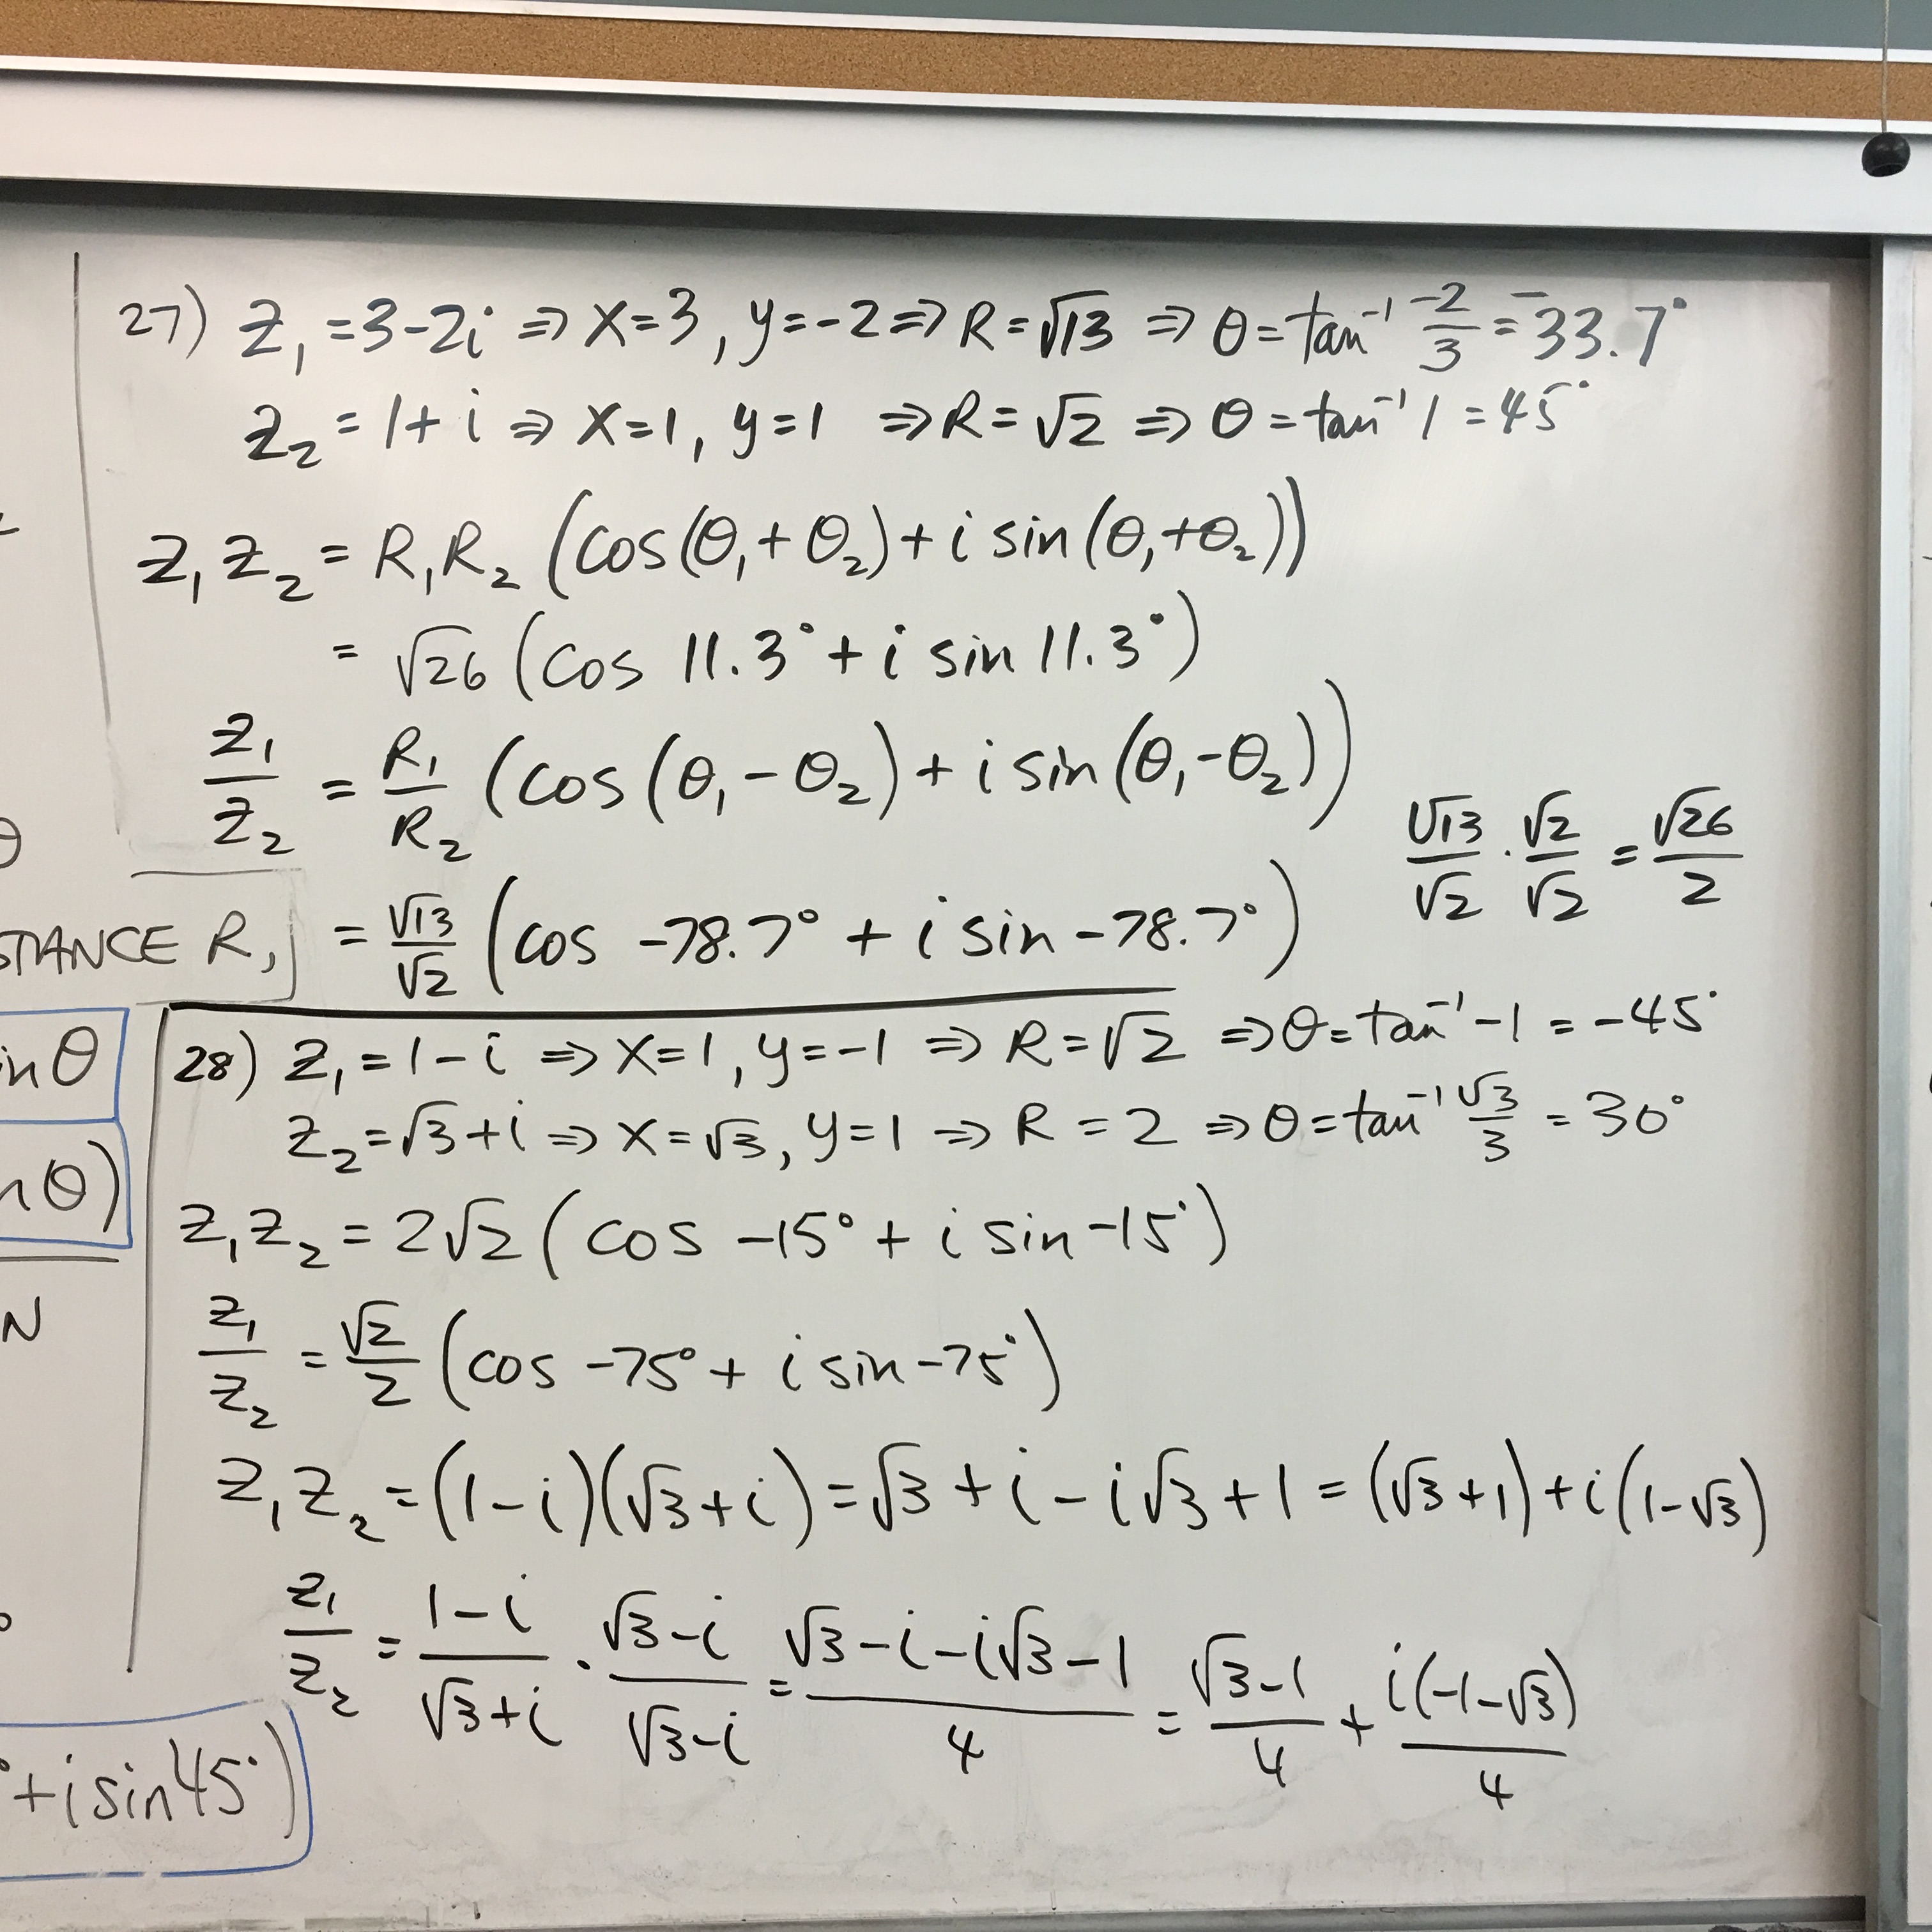 27) Z₁ = 3-2i ⇒ X=3, y=-2 ⇒ R=√13 ⇒ θ = tan⁻¹ -2/3 = -33.7°
Z₂ = 1+i ⇒ X=1, y=1 ⇒ R=√2 ⇒ θ = tan⁻¹ 1 = 45°
Z₁Z₂ = R₁R₂ (cos(θ₁+θ₂)+i sin(θ₁+θ₂))
= √26 (cos 11.3° + i sin 11.3°)
Z₁/Z₂ = R₁/R₂ (cos(θ₁-θ₂)+i sin(θ₁-θ₂))
√13/√2 · √2/√2 = √26/2
= √13/√2 (cos -78.7° + i sin -78.7°)
28) Z₁ = 1-i ⇒ X=1, y=-1 ⇒ R=√2 ⇒ θ = tan⁻¹ -1 = -45°
Z₂ = √3+i ⇒ X=√3, y=1 ⇒ R=2 ⇒ θ = tan⁻¹ √3/3 = 30°
Z₁Z₂ = 2√2 (cos -15° + i sin -15°)
Z₁/Z₂ = √2/2 (cos -75° + i sin -75°)
Z₁Z₂ = (1-i)(√3+i) = √3+i-i√3+1 = (√3+1)+i(1-√3)
Z₁/Z₂ = 1-i/√3+i · √3-i/√3-i = √3-i-i√3-1/4 = √3-1/4 + i(-1-√3)/4
STANCE R,
in θ
n θ)
N
° + i sin 45°)